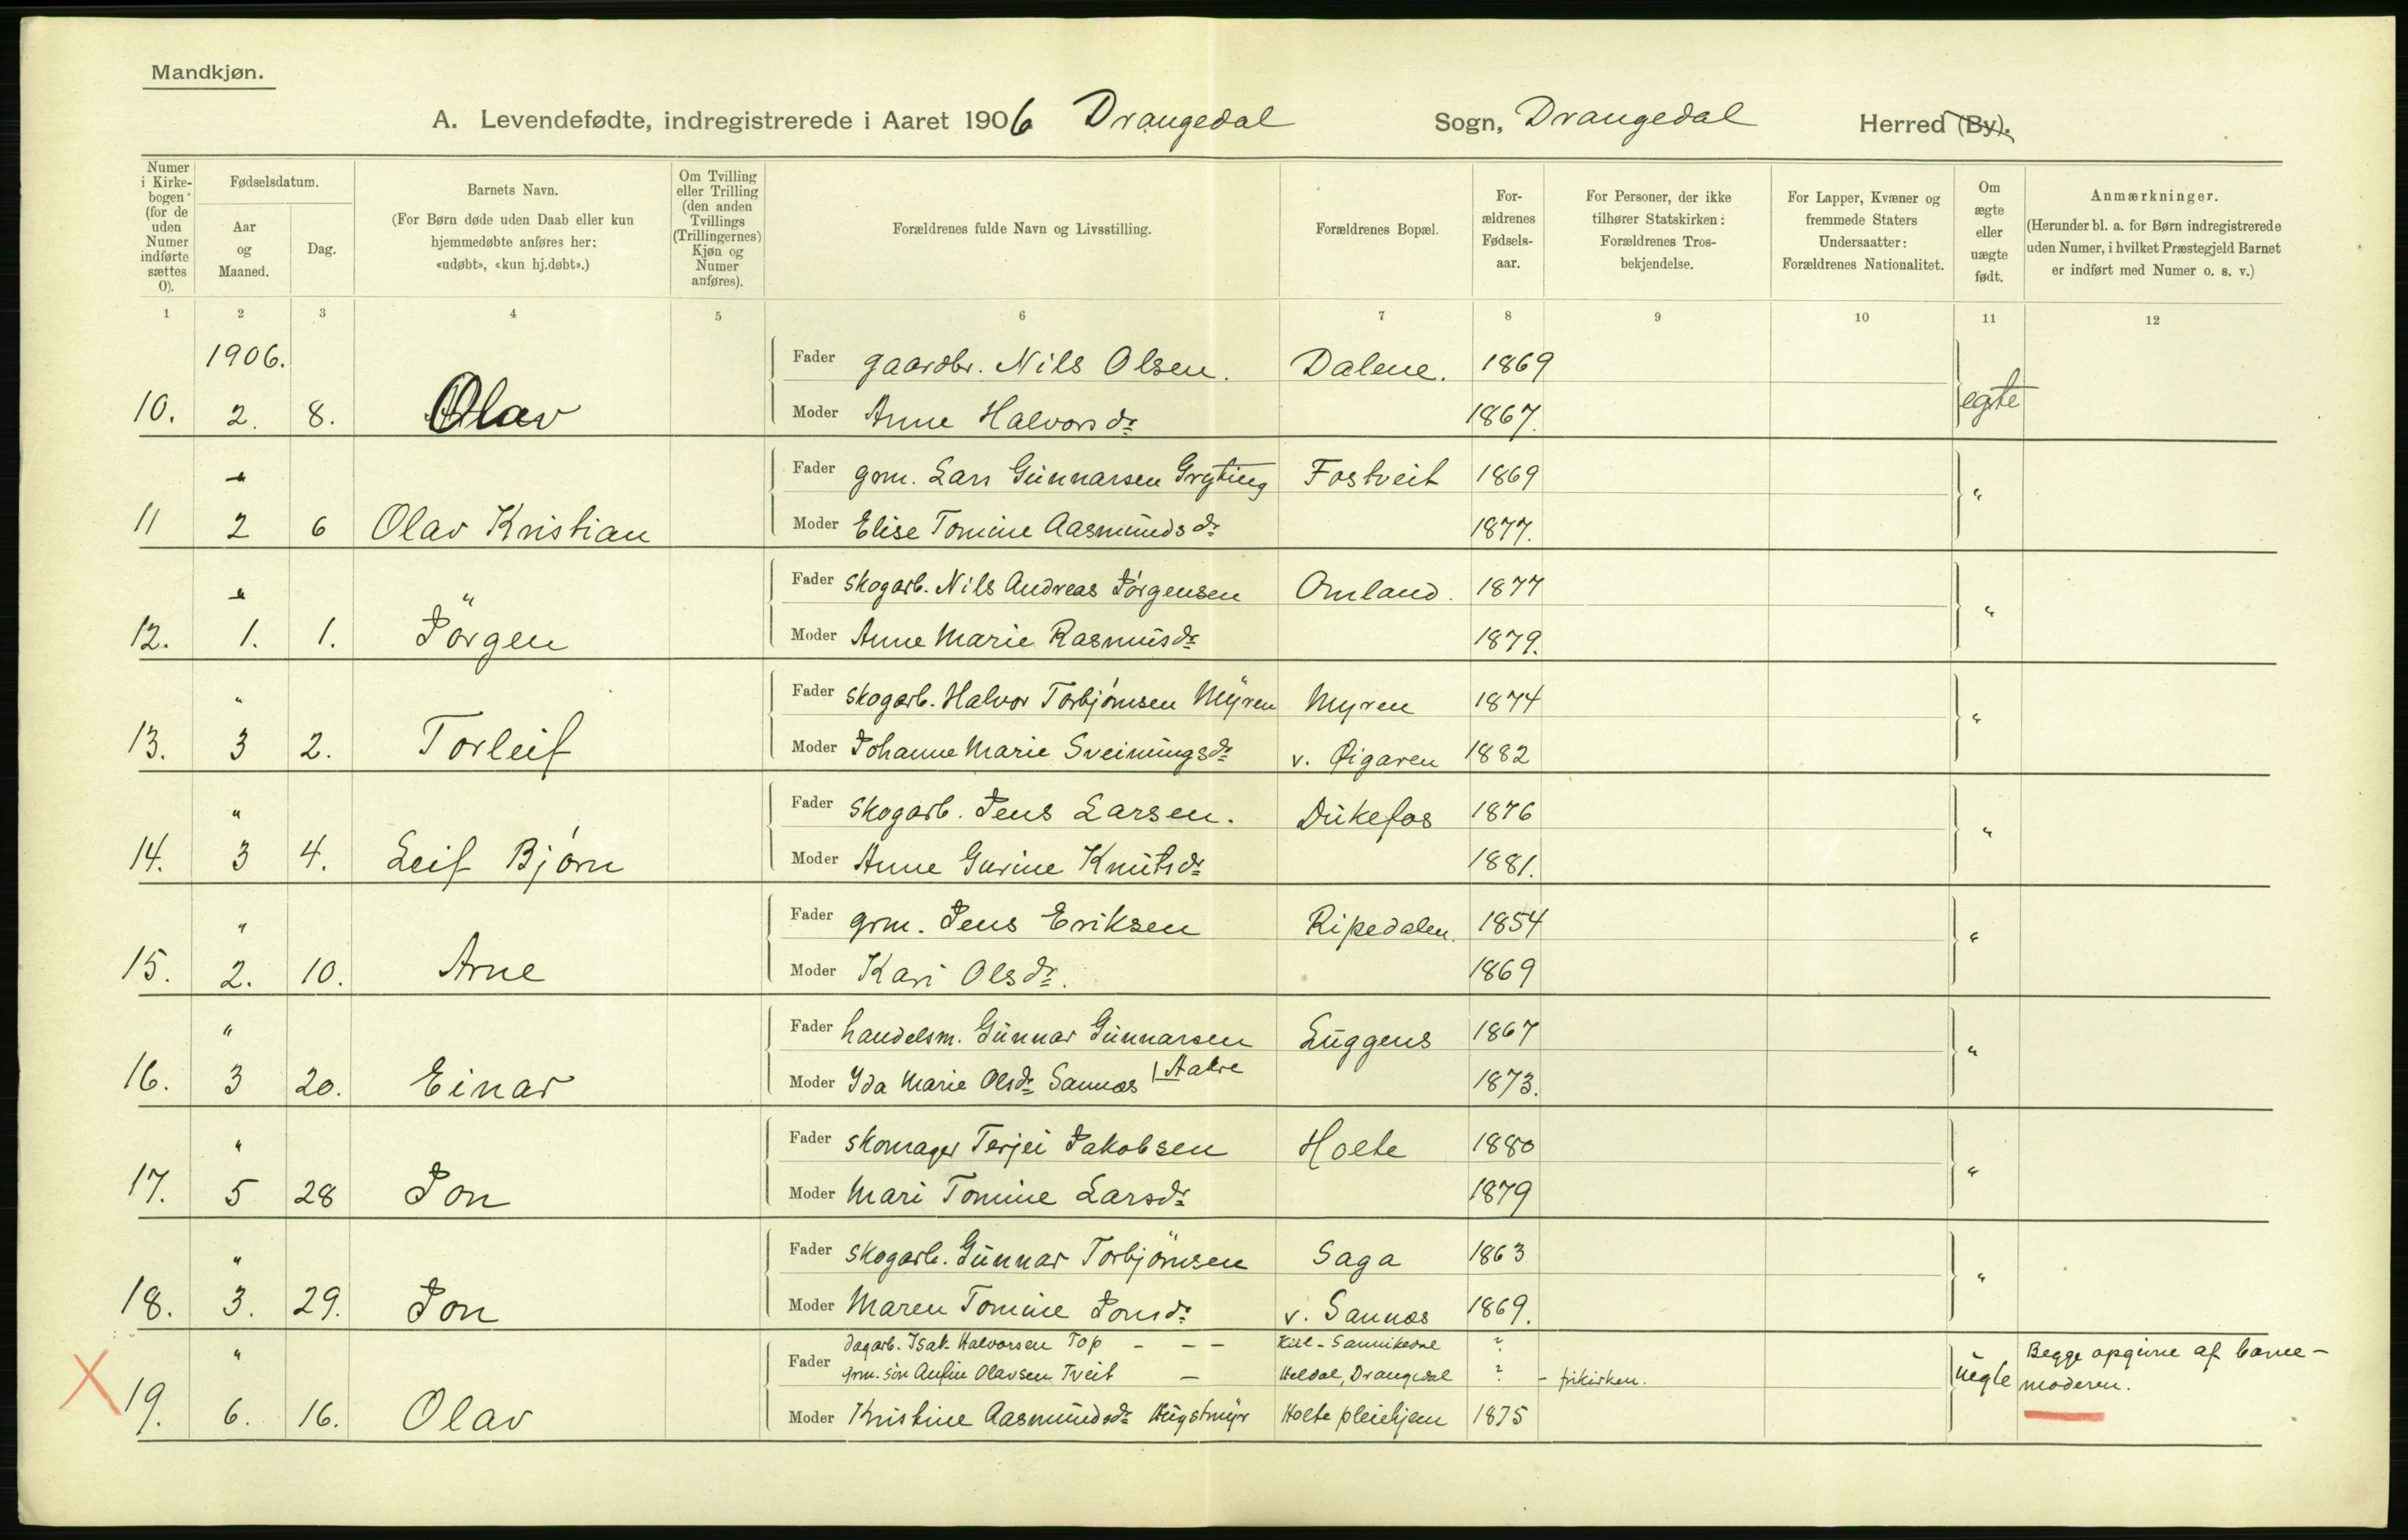 Mandkjøn.
A. Levendefødte, indregistrerede i Aaret 1906 Drangedal Sogn, Drangedal Herred (By).
Numer i Kirke-bogen (for de uden Numer indførte sættes 0).
Fødselsdatum.
Aar og Maaned.
Dag.
Barnets Navn.
(For Børn døde uden Daab eller kun hjemmedøbte anføres her: «udøbt», «kun hj.døbt».)
Om Tvilling eller Trilling (den anden Tvillings (Trillingernes) Kjøn og Numer anføres).
Forældrenes fulde Navn og Livsstilling.
Forældrenes Bopæl.
For-ældrenes Fødsels-aar.
For Personer, der ikke tilhører Statskirken: Forældrenes Tros-bekjendelse.
For Lapper, Kvæner og fremmede Staters Undersaatter: Forældrenes Nationalitet.
Om ægte eller uægte født.
Anmærkninger.
(Herunder bl. a. for Børn indregistrerede uden Numer, i hvilket Præstegjeld Barnet er indført med Numer o. s. v.)
1 2 3 4 5 6 7 8 9 10 11 12
1906. Fader gaardbr. Nils Olsen. Dalene. 1869
10. 2. 8. Olav Moder Anne Halvorsdr 1867. egte
" Fader grm. Lars Gunnarsen Gryting Fostveit 1869 "
11 2 6 Olav Kristian Moder Elise Tomine Aasmundsdr 1877.
" Fader skogarb. Nils Andreas Jörgensen Omland. 1877 "
12. 1. 1. Jörgen Moder Anne Marie Rasmusdr 1879.
" Fader skogarb. Halvor Torbjörnsen Myren Myren 1874 "
13. 3 2. Torleif Moder Johanne Marie Sveinungsdr v. Øigaren 1882
" Fader skogarb. Jens Larsen. Dukefos 1876 "
14. 3 4. Leif Bjórn Moder Anne Gurine Knutsdr 1881.
" Fader grm. Jens Eriksen Ripedalen. 1854 "
15. 2. 10. Arne Moder Kari Olsdr. 1869
" Fader handelsm. Gunnar Gunnarsen Luggens 1867 "
Aakre
16. 3 20. Einar Moder Ida Marie Olsdr Sannes 1873.
" Fader skomager Terjei Jakobsen Holte 1880 "
17. 5 28 Jon Moder Mari Tomine Larsdr 1879
" Fader skogarb. Gunnar Torbjörnsen Saga 1863 "
18. 3. 29. Jon Moder Maren Tomine Jonsdr v. Sannes 1869.
" Fader dagarb. Isak Halvorsen Top - - - Kiil - Sannikedal ? Begge opgivne af barne-
grm. sön Anfin Olavsen Tveit - Heldal, Drangedal ? - frikirken. uegte moderen.
X 19. 6. 16. Olav Moder Kristine Aasmundsdr Holte pleiehjem 1875